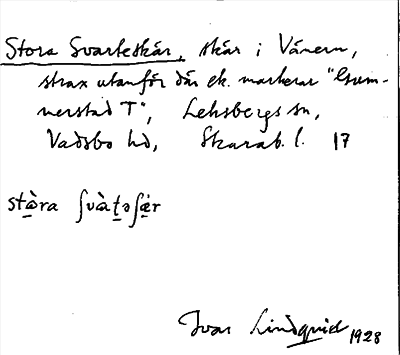 Stora Svarteskär, skär i Vänern,
strax utanför där ek. markerar "Gum-
nerstad T", Leksbergs sn,
Vadsbo hd, Skarab. l. 17
stàra ʃvàtəʃæ̀r
Ivar Lindquist 1928